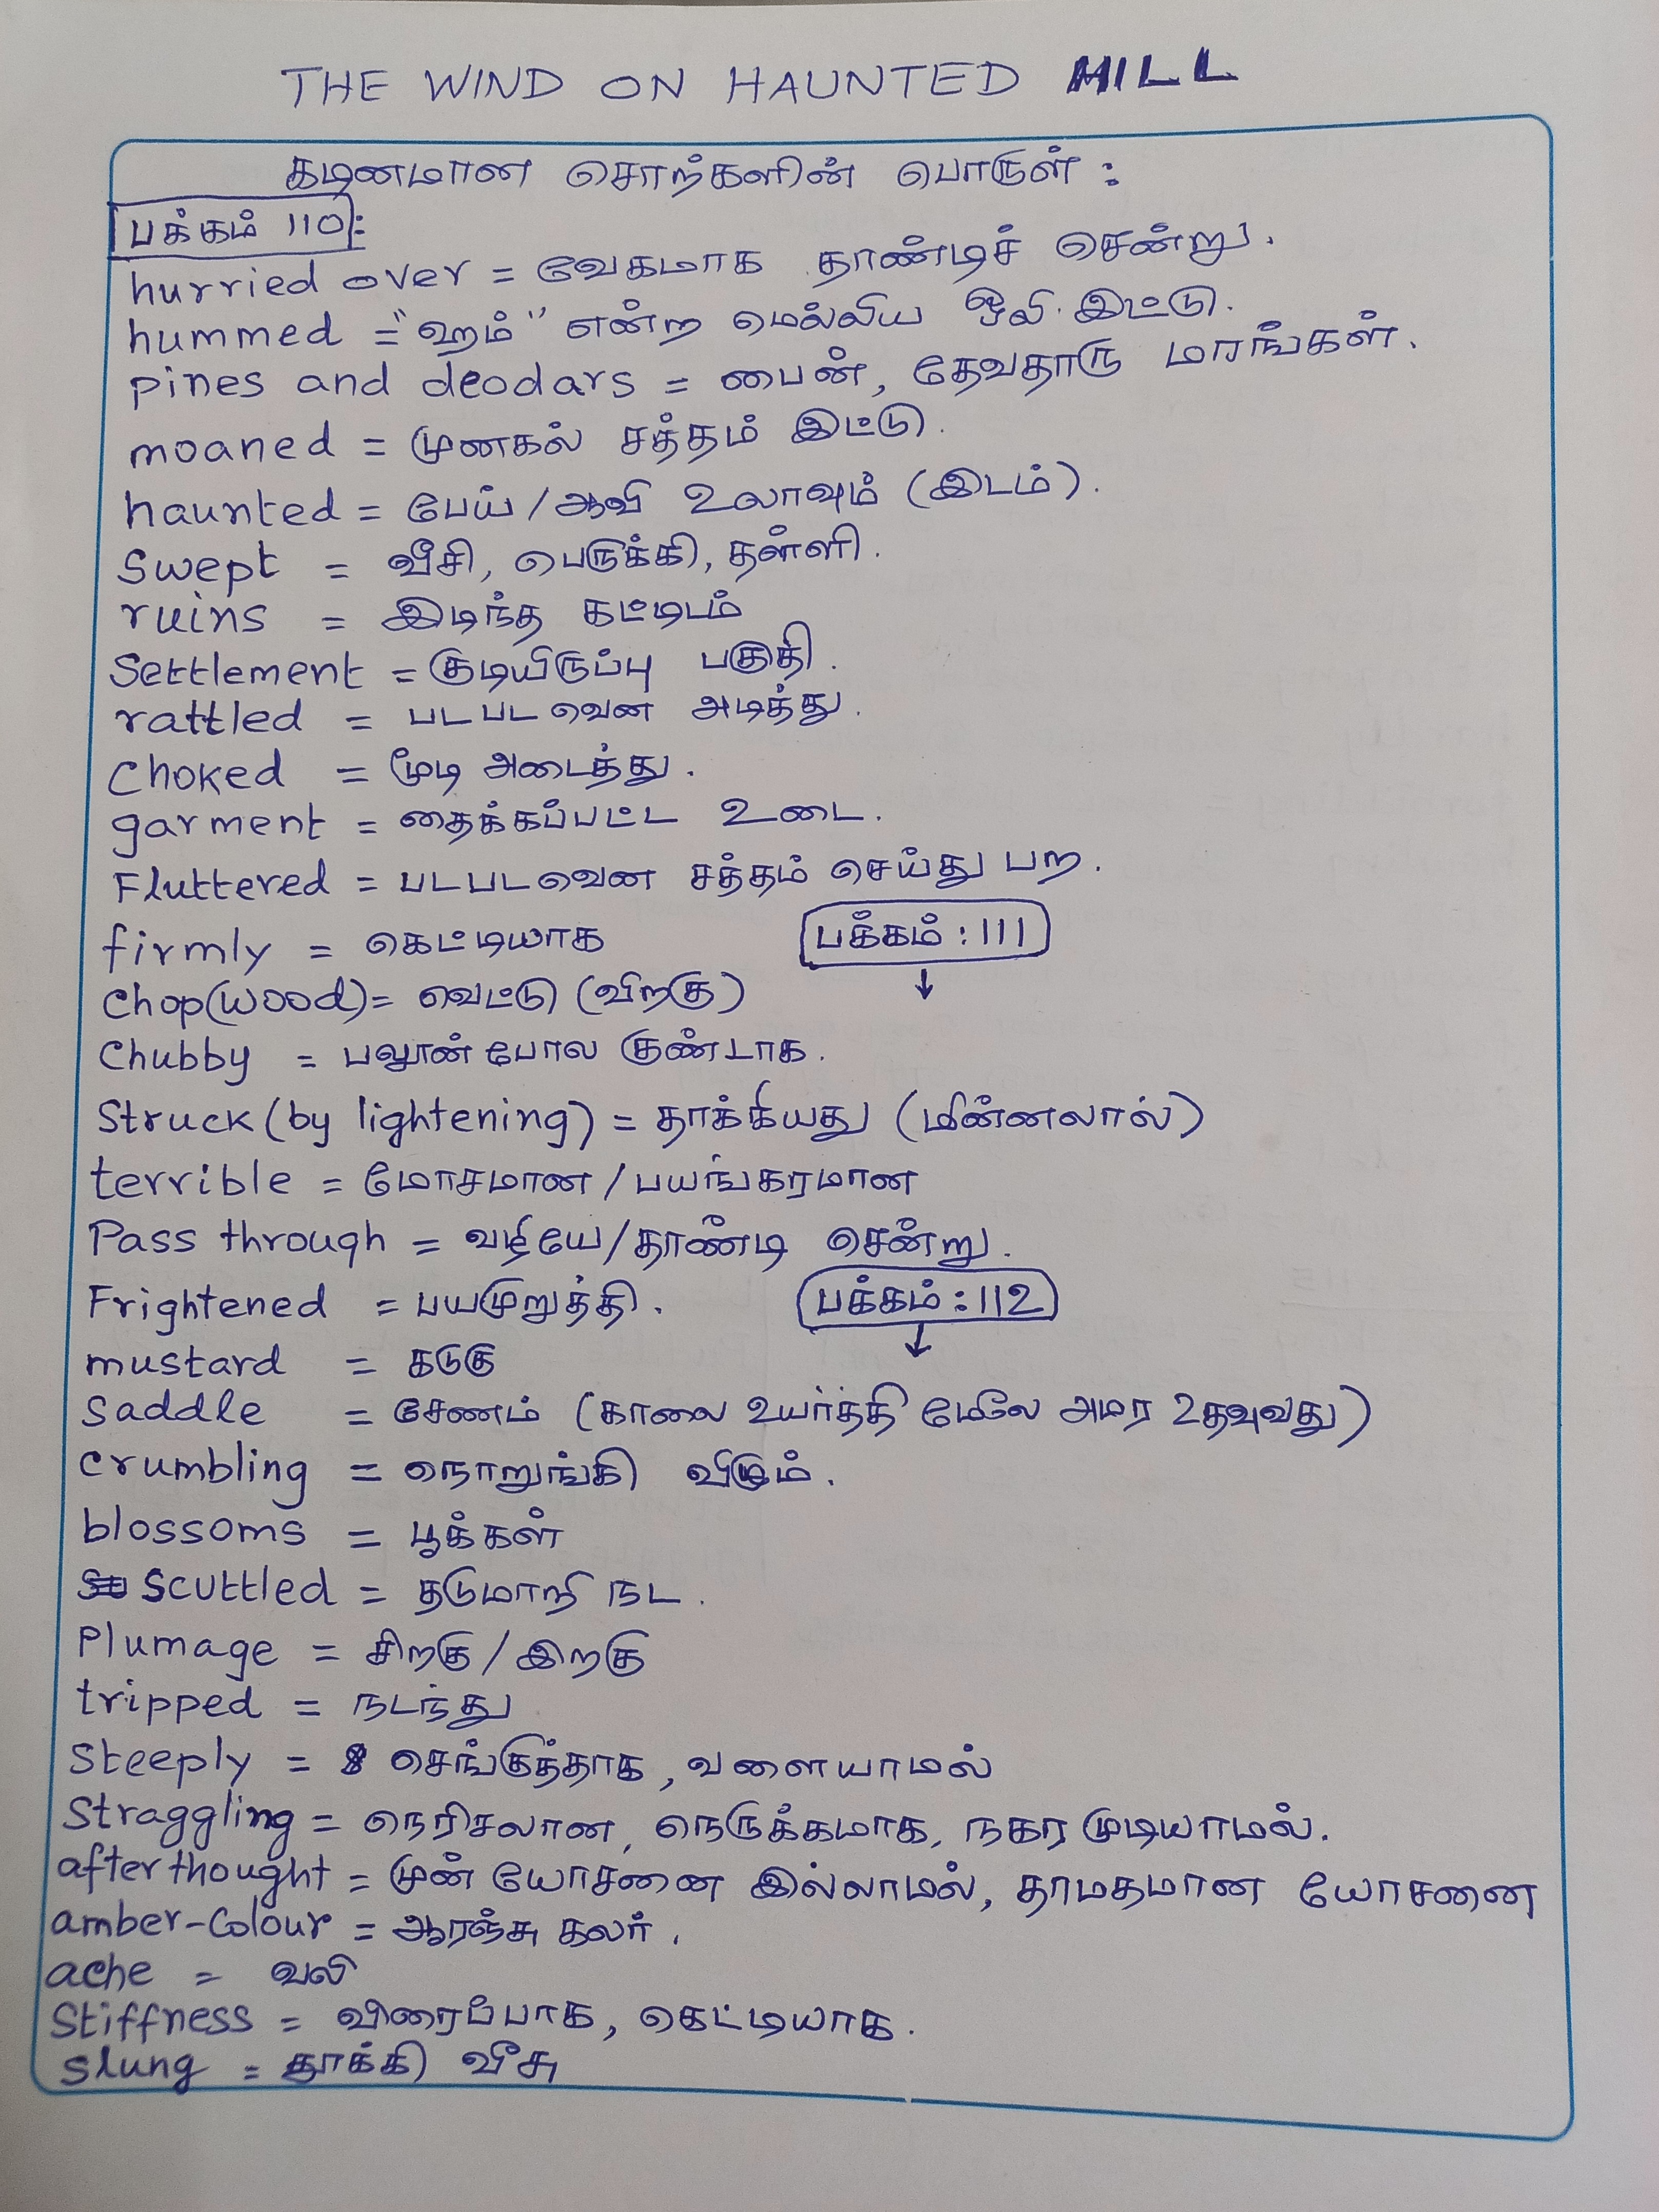 THE WIND ON HAUNTED HILL
கடினமான சொற்களின் பொருள் :
பக்கம் 110:
hurried over = வேகமாக தாண்டிச் சென்று.
hummed = "ஹம்" என்ற மெல்லிய ஒலி இட்டு.
pines and deodars = பைன், தேவதாரு மரங்கள்.
moaned = முனகல் சத்தம் இட்டு.
haunted = பேய் / ஆவி உலாவும் (இடம்).
Swept = வீசி, பெருக்கி, தள்ளி.
ruins = இடிந்த கட்டிடம்
Settlement = குடியிருப்பு பகுதி.
rattled = படபடவென அடித்து.
Choked = மூடி அடைத்து.
garment = தைக்கப்பட்ட உடை.
Fluttered = படபடவென சத்தம் செய்து பற.
firmly = கெட்டியாக
பக்கம் : 111
Chop(wood) = வெட்டு (விறகு)
Chubby = பலூன் போல குண்டாக.
Struck (by lightening) = தாக்கியது (மின்னலால்)
terrible = மோசமான / பயங்கரமான
Pass through = வழியே / தாண்டி சென்று.
Frightened = பயமுறுத்தி.
பக்கம் : 112
mustard = கடுகு
Saddle = சேணம் (காலை உயர்த்தி மேலே அமர உதவுவது)
Crumbling = நொறுங்கி விடும்.
blossoms = பூக்கள்
Scuttled = தடுமாறி நட.
Plumage = சிறகு / இறகு
tripped = நடந்து
Steeply = செங்குத்தாக, வளையாமல்
Straggling = நெரிசலான, நெருக்கமாக, நகர முடியாமல்.
afterthought = முன் யோசனை இல்லாமல், தாமதமான யோசனை
amber-Colour = ஆரஞ்சு கலர்.
ache = வலி
Stiffness = விரைப்பாக, கெட்டியாக.
Slung = தூக்கி வீசு